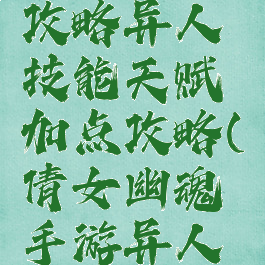 攻略异人
技能天赋
加点攻略(
倩女幽魂
手游异人